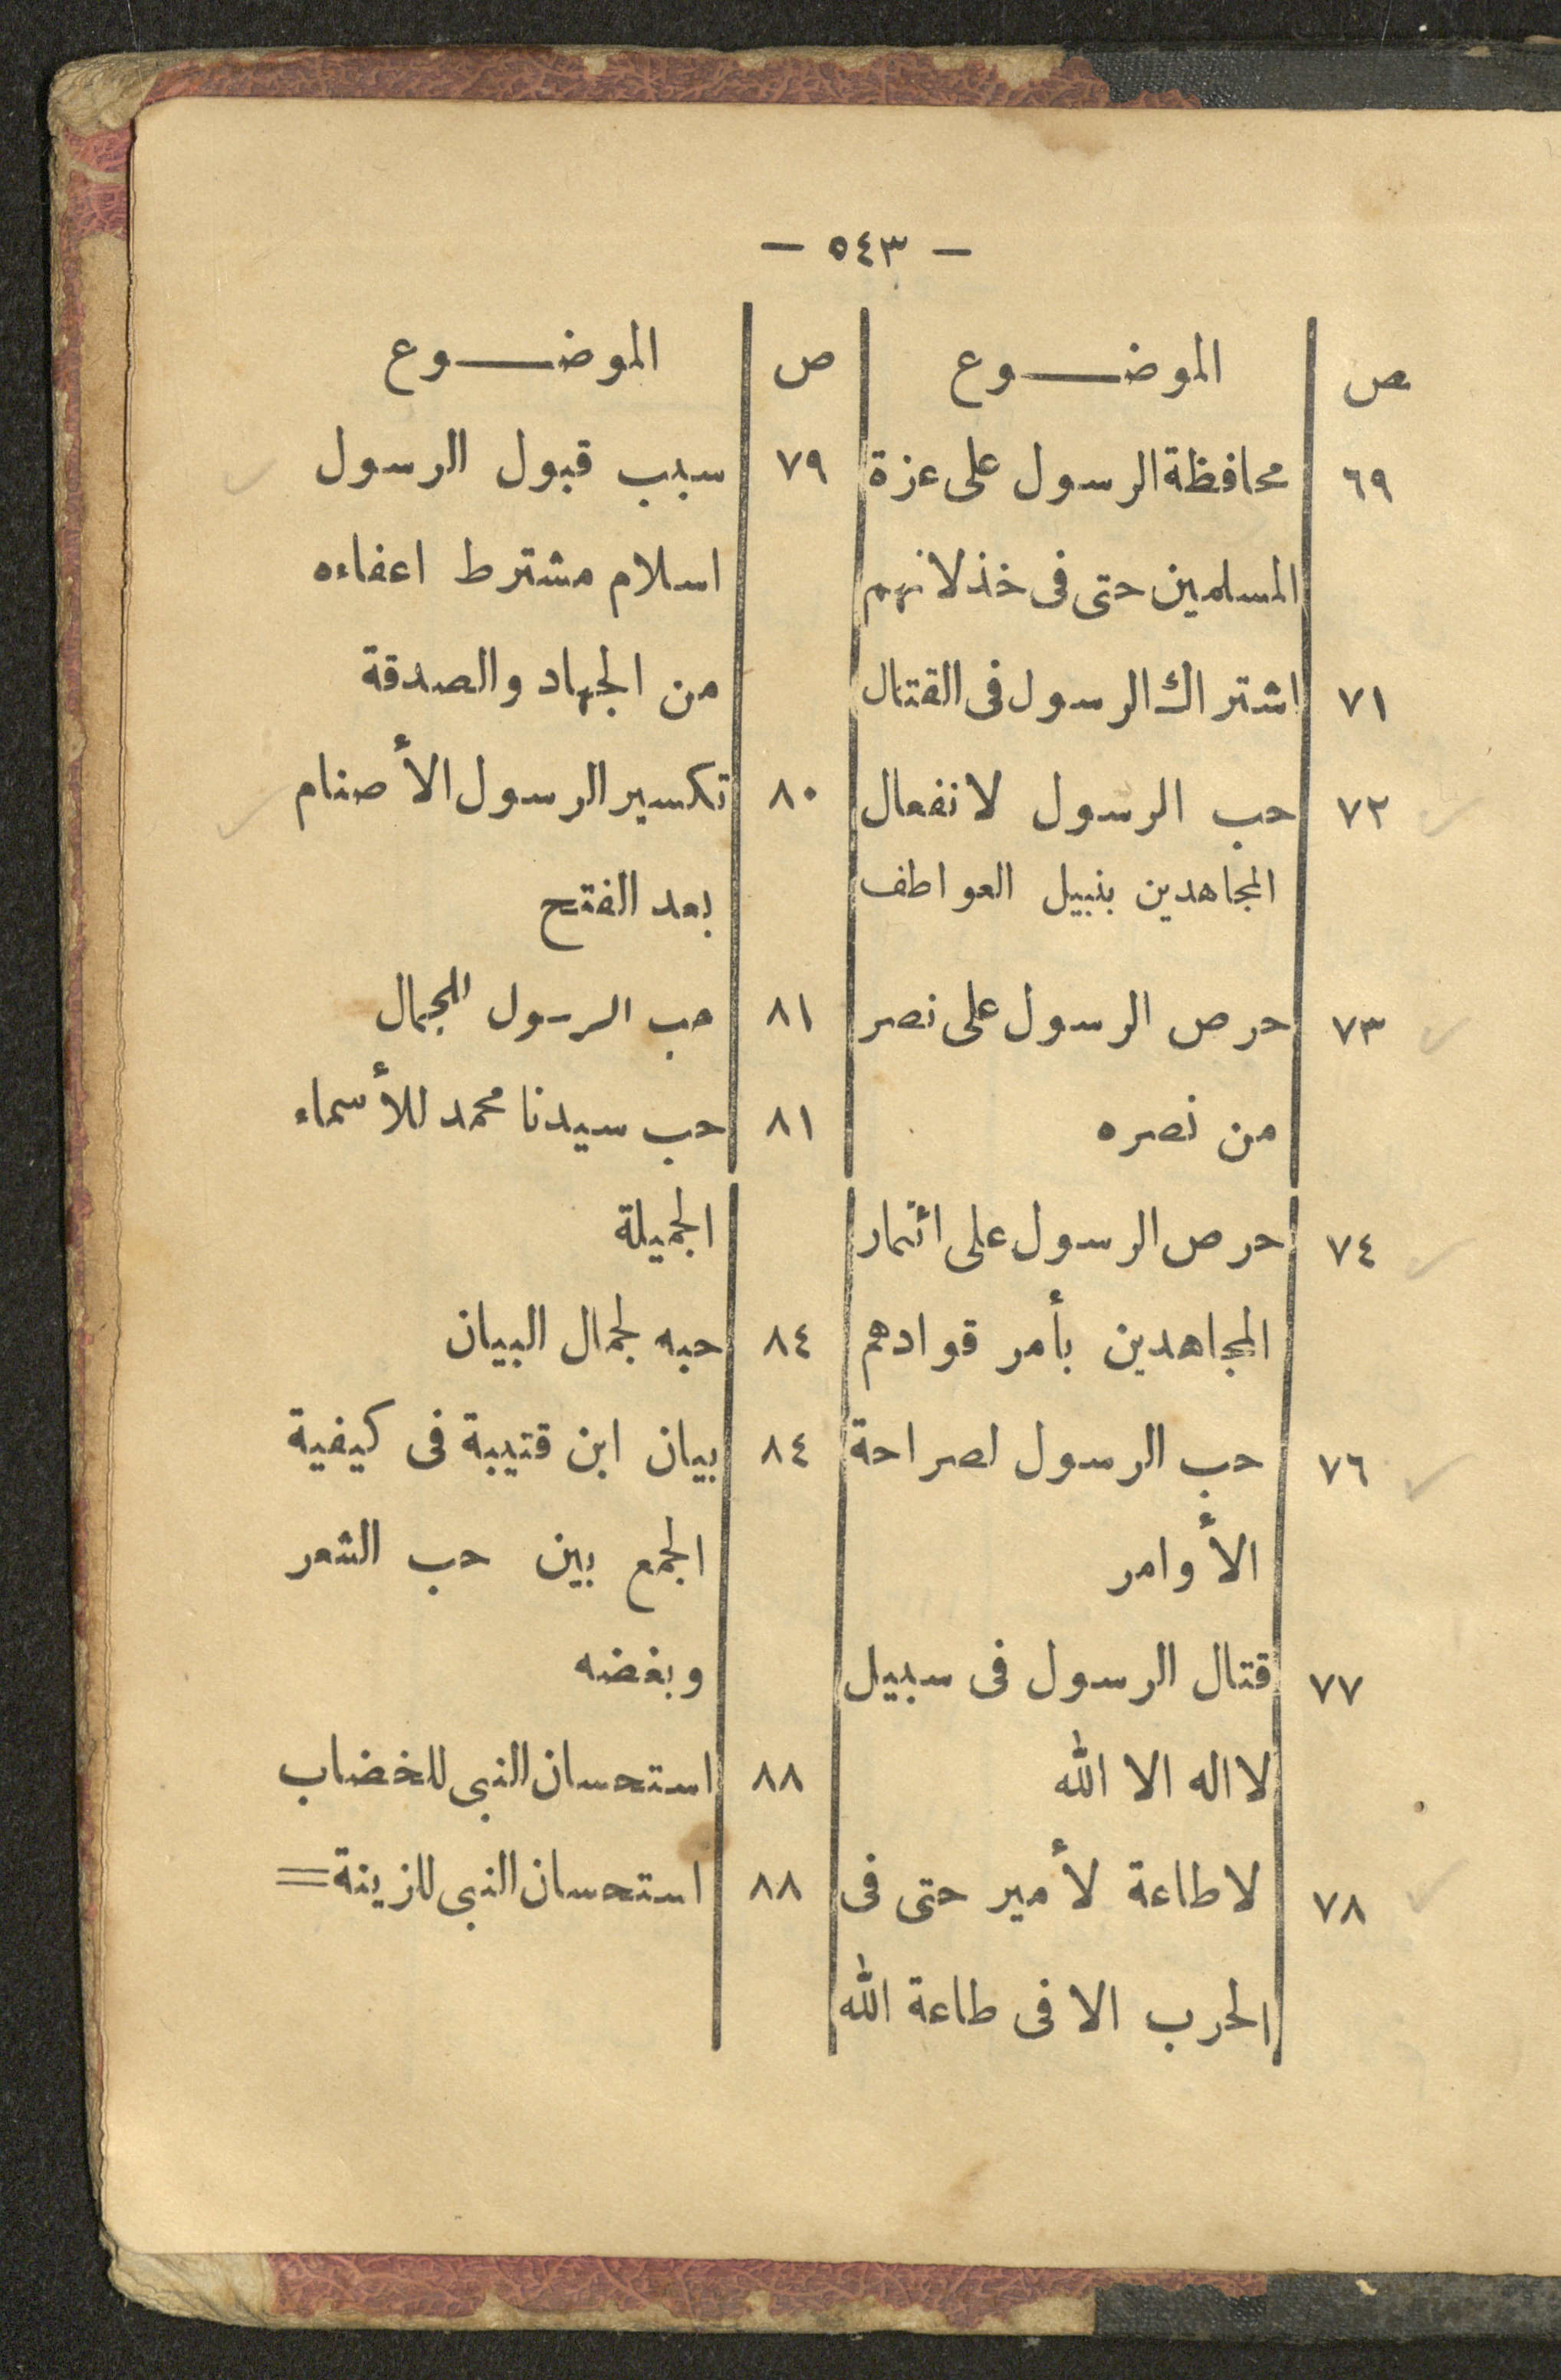 — ٥٤٣ —
ص الموضـــوع
٦٩ محافظة الرسول على عزة
المسلمين حتى فى خذلانهم
٧١ اشتراك الرسول فى القتال
٧٢ حب الرسول لانفعال
المجاهدين بنبيل العواطف
٧٣ حرص الرسول على نصر
من نصره
٧٤ حرص الرسول على ائتمار
المجاهدين بأمر قوادهم
٧٦ حب الرسول لصراحة
الأوامر
٧٧ قتال الرسول فى سبيل
لا اله الا الله
٧٨ لاطاعة لأمير حتى فى
الحرب الا فى طاعة الله
ص الموضـــوع
٧٩ سبب قبول الرسول
اسلام مشترط اعفاءه
من الجهاد والصدقة
٨٠ تكسير الرسول الأصنام
بعد الفتح
٨١ حب الرسول للجمال
٨١ حب سيدنا محمد للأسماء
الجميلة
٨٤ حبه لجمال البيان
٨٤ بيان ابن قتيبة فى كيفية
الجمع بين حب الشعر
وبغضه
٨٨ استحسان النبى للخضاب
٨٨ استحسان النبى للزينة =